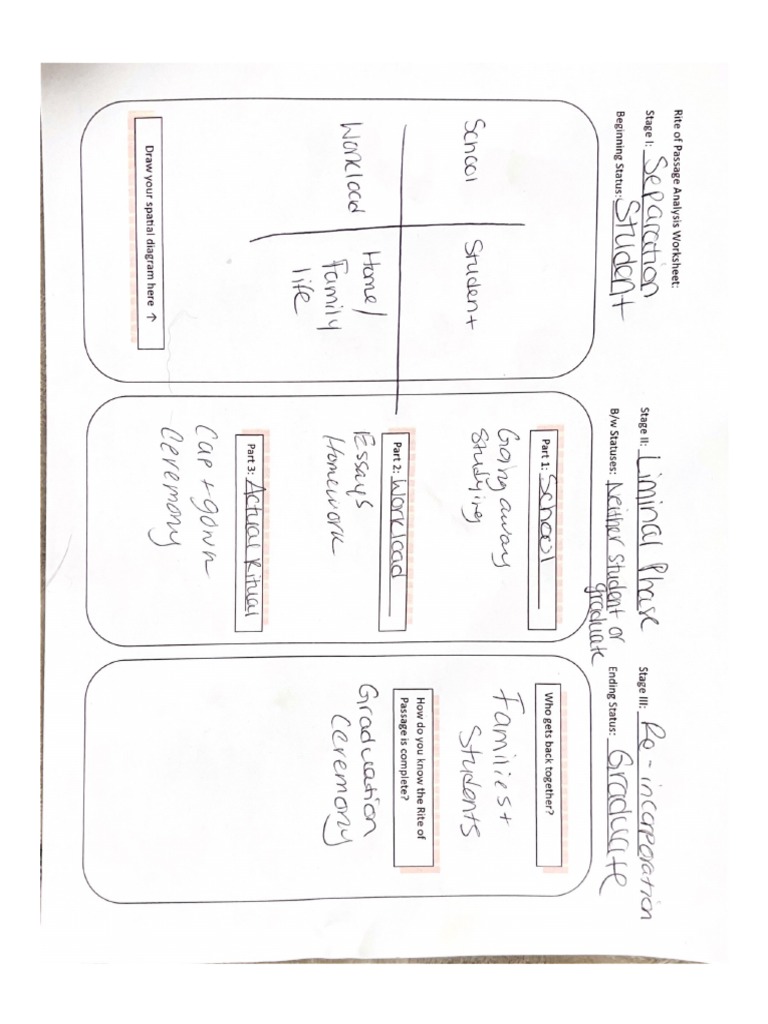 Rite of Passage Analysis Worksheet:
Stage I: Separation
Beginning Status: Student
School
Student
Workload
Home/
Family
life
Draw your spatial diagram here ↑
Stage II: Liminal Phase
B/w Statuses: Neither Student or
graduate
Part 1: School
Going away
Studying
Part 2: Workload
Essays
Homework
Part 3: Actual Ritual
Cap + gown
Ceremony
Stage III: Re-incorporation
Ending Status: Graduate
Who gets back together?
Families +
Students
How do you know the Rite of
Passage is complete?
Graduation
Ceremony